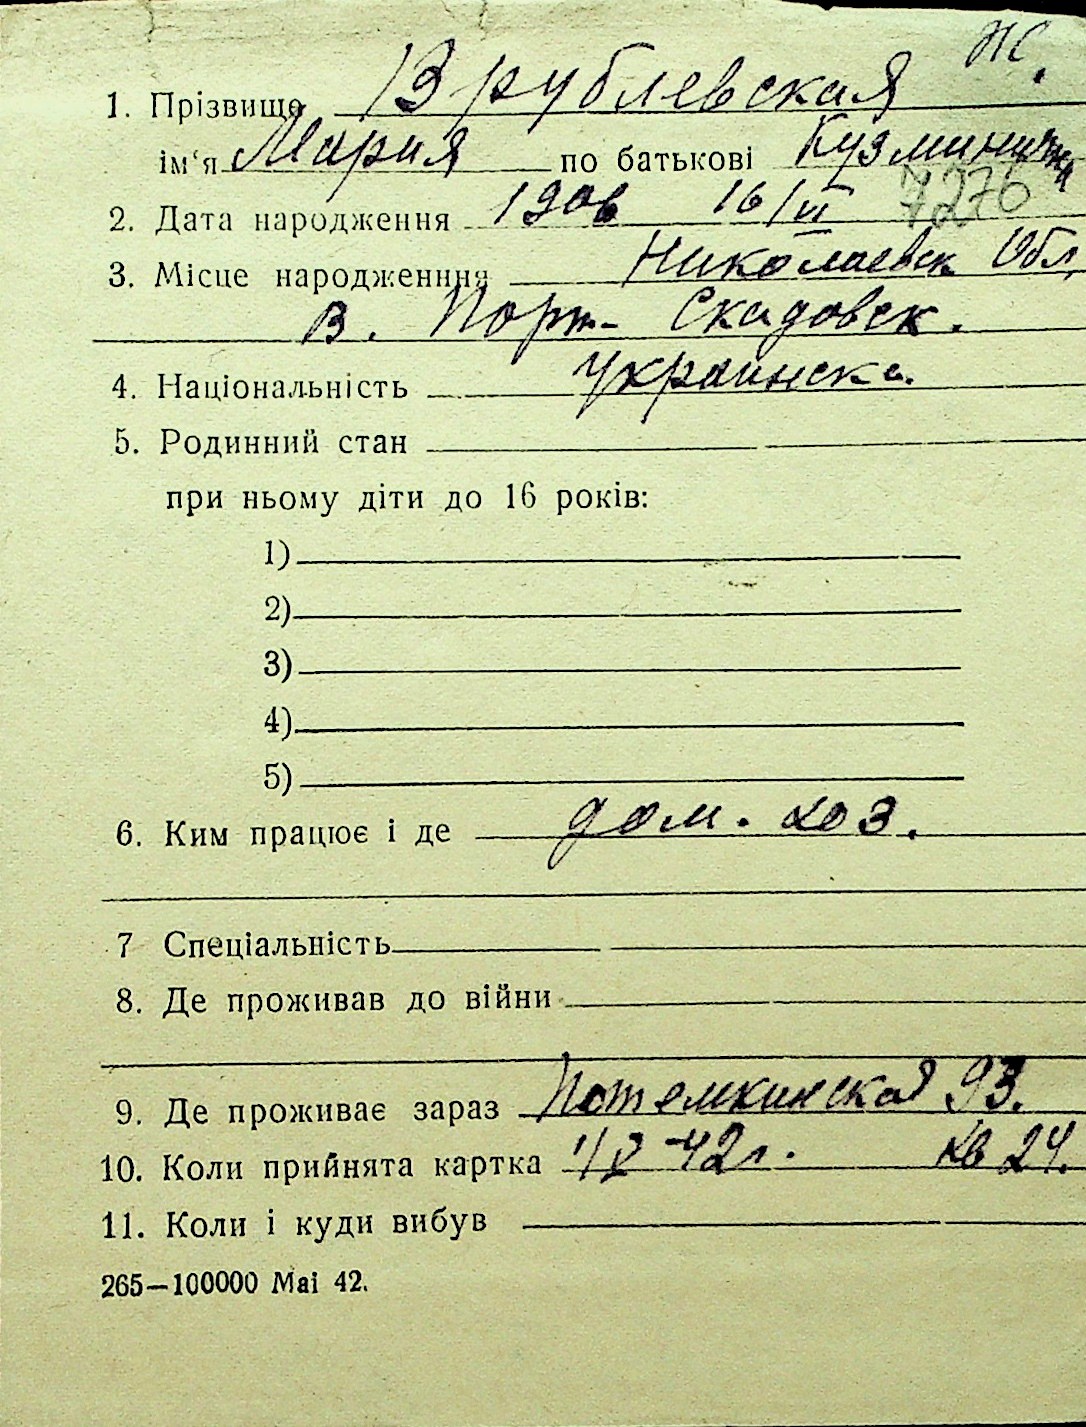 Ж.
1. Прізвище Врублевская
ім‘я Мария по батькові Кузминична
7276
2. Дата народження 1906 16/VI
3. Місце народженння Николаевск Обл.
В. Порт- Скадовск.
4. Національність украинска.
5. Родинний стан
при ньому діти до 16 років:
1)
2)
3)
4)
5)
6. Ким працює і де дом. хоз.
7 Спеціальність
8. Де проживав до війни
9. Де проживає зараз Потемкинская 93.
10. Коли прийнята картка 1/X-42г. кв 24.
11. Коли і куди вибув
265—100000 Mai 42.